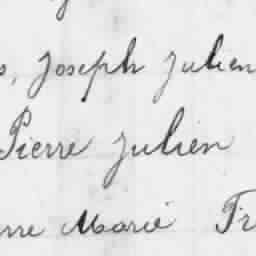 Joseph Julien
Pierre Julien
Marie